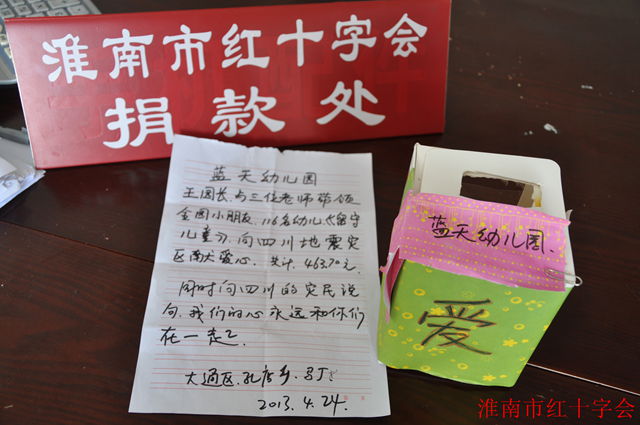 淮南市红十字会
捐款处
蓝天幼儿园
王园长与三位老师带领
全园小朋友,116名幼儿(留守
儿童),向四川地震灾
区献爱心.共计.463.70元.
同时向四川的灾民说
句.我们的心永远和你们
在一起
大通区.孔店乡.马厂
2013.4.24.
蓝天幼儿园.
爱
淮南市红十字会